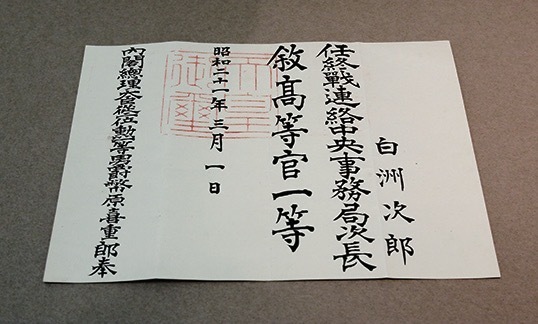 白洲次郎
任終戰連絡中央事務局次長
敘高等官一等
昭和二十一年三月一日
天皇御璽
內閣總理大臣從二位勳一等男爵幣原喜重郎奉